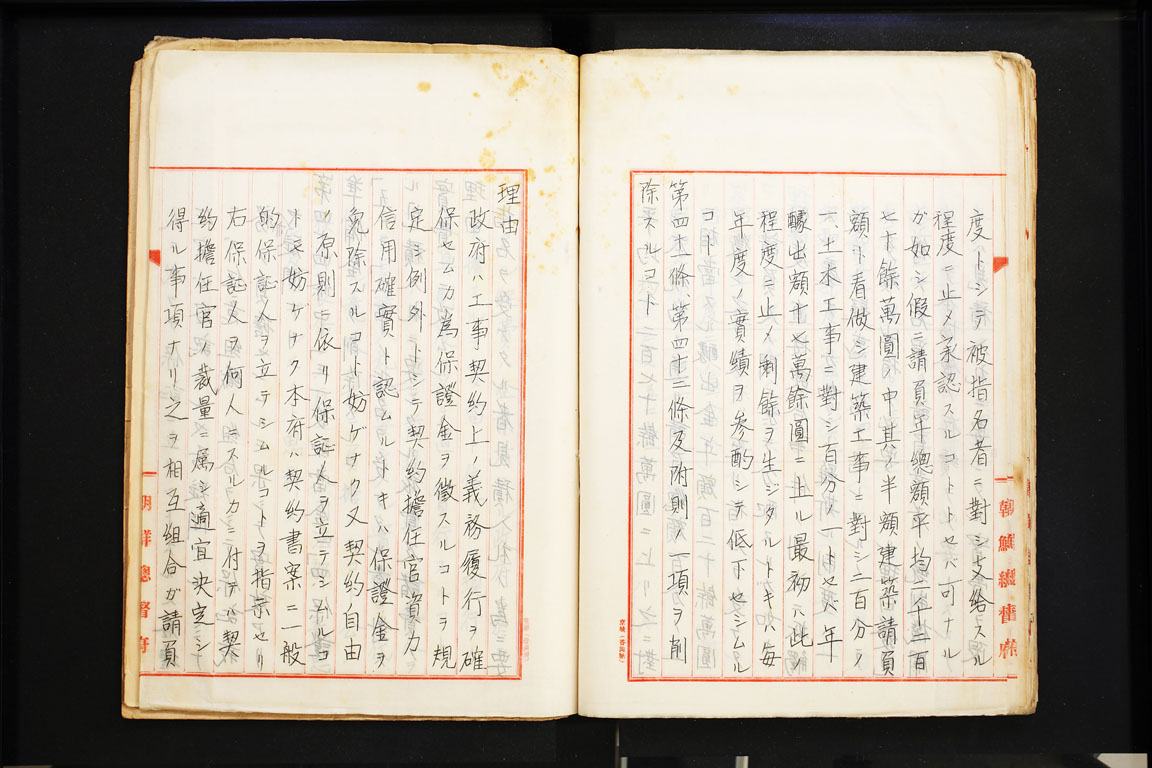 度トシテ被指名者ニ對シ支給スル
程度ニ止メ承認スルコトトセバ可ナル
ガ如シ假ニ請負年總額平均二千二百
七十餘萬圓ノ中其ノ半額建築請負
額ト看做シ建築工事ニ對シ二百分ノ
一、土木工事ニ對シ百分ノ一トセバ年
醵出額十七萬餘圓ニ上ル最初ハ此ノ
程度ニ止メ剩餘ヲ生ジタルトキハ毎
年度ノ實績ヲ參酌シテ低下セシムル
コト
第四十條、第四十三條及附則ノ一項ヲ削
除スルコト
理由
政府ハ工事契約上ノ義務履行ヲ確
保セムカ為保證金ヲ徴スルコトヲ規
定シ例外トシテ契約擔任官資力
信用確實ト認ムルトキハ保證金ヲ
免除スルコト妨ゲナク又契約自由
ノ原則ニ依リ保証人ヲ立テシムルコ
トモ妨ゲナク本府ハ契約書案ニ一般
的保証人ヲ立テシムルコトヲ指示セリ
右保証人ヲ何人ニスルカニ付テハ契
約擔任官ノ裁量ニ屬シ適宜決定シ
得ル事項ナリ之ヲ相互組合ガ請負
朝鮮總督府
朝鮮總督府